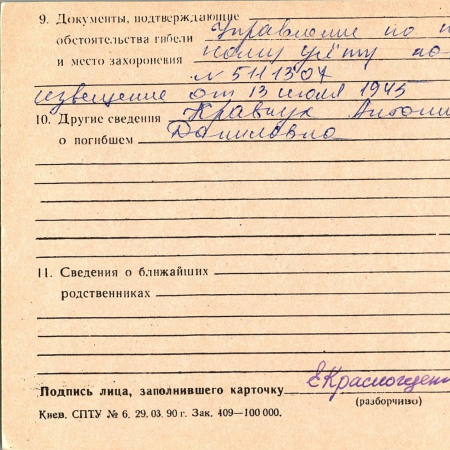 9. Документы, подтверждающие Управление по
обстоятельства гибели
и место захоронения ному учёту по
№ 5111307
извещение от 13 июля 1945
10. Другие сведения Кравчук Антони
о погибшем Даниловна
11. Сведения о ближайших
родственниках
Подпись лица, заполнившего карточку
(разборчиво)
Киев. СПТУ № 6. 29. 03. 90 г. Зак. 409—100 000.